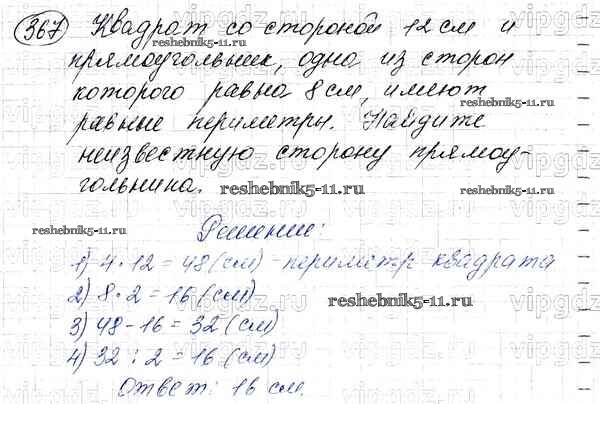 367 Квадрат со стороной 12 см и
прямоугольник, одна из сторон
которого равна 8 см, имеют
равные периметры. Найдите
неизвестную сторону прямоу-
гольника.
reshebnik5-11.ru
Решение:
1) 4 · 12 = 48 (см) - периметр квадрата
2) 8 · 2 = 16 (см)
3) 48 - 16 = 32 (см)
4) 32 : 2 = 16 (см)
Ответ: 16 см.
reshebnik5-11.ru
reshebnik5-11.ru
reshebnik5-11.ru
reshebnik5-11.ru
vipgdz.ru